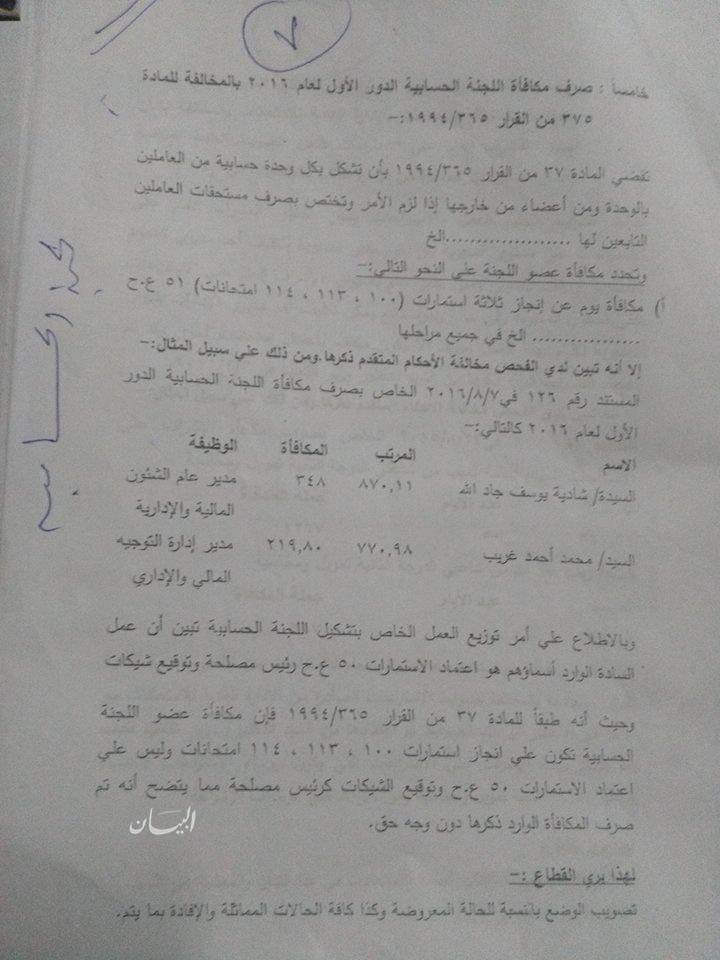 ٧
خامساً : صرف مكافأة اللجنة الحسابية الدور الأول لعام ٢٠١٦ بالمخالفة للمادة
٣٧٥ من القرار ١٩٩٤/٣٦٥:-
تقضي المادة ٣٧ من القرار ١٩٩٤/٣٦٥ بأن تشكل بكل وحدة حسابية من العاملين
بالوحدة ومن أعضاء من خارجها إذا لزم الأمر وتختص بصرف مستحقات العاملين
التابعين لها ....................الخ
وتحدد مكافأة عضو اللجنة علي النحو التالي:-
أ) مكافأة يوم عن إنجاز ثلاثة استمارات (١٠٠ ، ١١٣ ، ١١٤ امتحانات) ٥١ ع.ح
................. الخ في جميع مراحلها
إلا أنه تبين لدي الفحص مخالفة الأحكام المتقدم ذكرها.ومن ذلك علي سبيل المثال:-
المستند رقم ١٢٦ في٢٠١٦/٨/٧ الخاص بصرف مكافأة اللجنة الحسابية الدور
الأول لعام ٢٠١٦ كالتالي:-
الاسم المرتب المكافأة الوظيفة
السيدة/ شادية يوسف جاد الله ٨٧٠,١١ ٣٤٨ مدير عام الشئون
المالية والإدارية
السيد/ محمد أحمد غريب ٧٧٠,٩٨ ٢١٩,٨٠ مدير إدارة التوجيه
المالي والإداري
وبالاطلاع علي أمر توزيع العمل الخاص بتشكيل اللجنة الحسابية تبين أن عمل
السادة الوارد أسماؤهم هو اعتماد الاستمارات ٥٠ ع.ح رئيس مصلحة وتوقيع شيكات
وحيث أنه طبقاً للمادة ٣٧ من القرار ١٩٩٤/٣٦٥ فإن مكافأة عضو اللجنة
الحسابية تكون علي انجاز استمارات ١٠٠ ، ١١٣ ، ١١٤ امتحانات وليس علي
اعتماد الاستمارات ٥٠ ع.ح وتوقيع الشيكات كرئيس مصلحة مما يتضح أنه تم
صرف المكافأة الوارد ذكرها دون وجه حق.
البيان
لهذا يري القطاع :-
تصويب الوضع بالنسبة للحالة المعروضة وكذا كافة الحالات المماثلة والإفادة بما يتم.